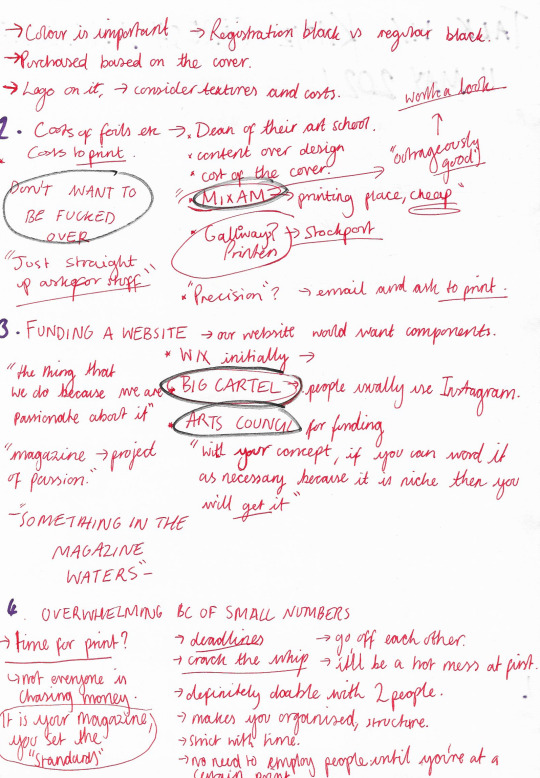 → Colour is important → Registration black vs regular black.
→ Purchased based on the cover.
→ Logo on it, → consider textures and costs.
worth a look
2. Costs of foils etc → * Dean of their art school.
* Costs to print.
* content over design
* cost of the cover.
"outrageously good"
DON'T WANT TO
BE FUCKED
OVER
"* MIXAM → printing place, cheap"
* Galliways?
Printers → Stockport
"Just straight
up ask for stuff"
* "Precision"? → email and ask to print.
3. FUNDING A WEBSITE → our website would want components.
* WIX initially →
"the thing that
we do because we are
passionate about it"
* BIG CARTEL → people usually use Instagram.
* ARTS COUNCIL for funding
"magazine → project
of passion."
"with your concept, if you can word it
as necessary because it is niche then you
will get it"
- "SOMETHING IN THE
MAGAZINE
WATERS" -
4. OVERWHELMING BC OF SMALL NUMBERS
→ time for print?
→ not everyone is
chasing money.
It is your magazine,
you set the
"standards"
→ deadlines → go off each other.
→ crack the whip → it'll be a hot mess at first.
→ definitely doable with 2 people.
→ makes you organised, structure.
→ strict with time.
→ no need to employ people until you're at a
certain point